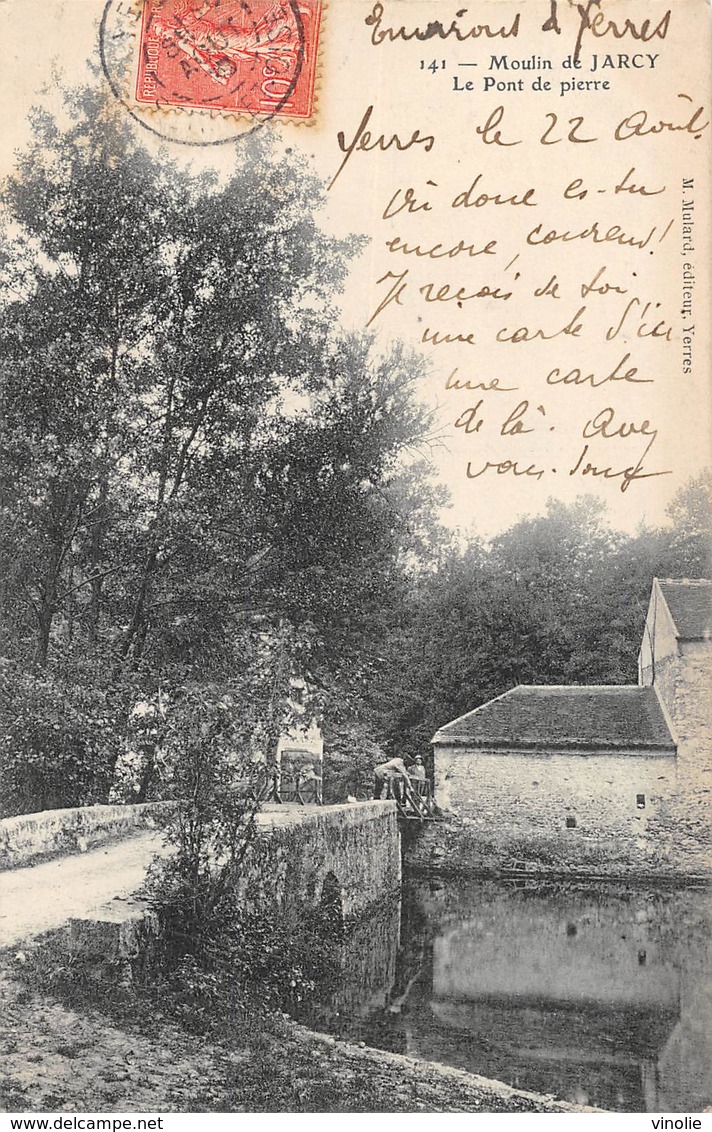 Environs d'Yerres
141 — Moulin de JARCY
Le Pont de pierre
Yerres le 22 Août.
où donc es-tu
encore, coureur!
Je reçois de toi
une carte d'ici
une carte
de là.
vous
M. Mulard, éditeur, Yerres
REPUBLIQUE
10
vinolie